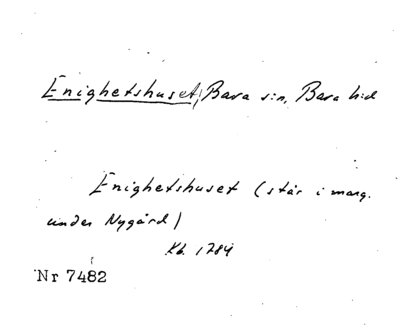 Enighetshuset, Bara sn, Bara hd
Enighetshuset (står i marg.
under Nygård)
Kb. 1784
Nr 7482